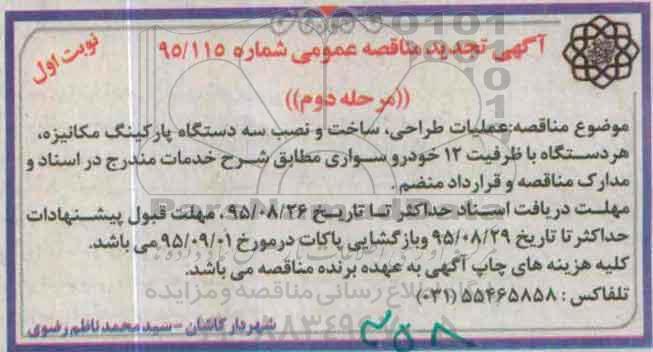 آگهی تجدید مناقصه عمومی شماره ۹۵/۱۱۵
نوبت اول
((مرحله دوم))
موضوع مناقصه:عملیات طراحی، ساخت و نصب سه دستگاه پارکینگ مکانیزه،
هردستگاه با ظرفیت ۱۲ خودرو سواری مطابق شرح خدمات مندرج در اسناد و
مدارک مناقصه و قرارداد منضم.
مهلت دریافت اسناد حداکثر تا تاریخ ۹۵/۰۸/۲۶ ، مهلت قبول پیشنهادات
حداکثر تا تاریخ ۹۵/۰۸/۲۹ وبازگشایی پاکات درمورخ ۹۵/۰۹/۰۱ می باشد.
کلیه هزینه های چاپ آگهی به عهده برنده مناقصه می باشد.
تلفاکس : ۵۵۴۶۵۸۵۸ (۰۳۱)
شهردار کاشان - سید محمد ناظم رضوی
۳۵۸